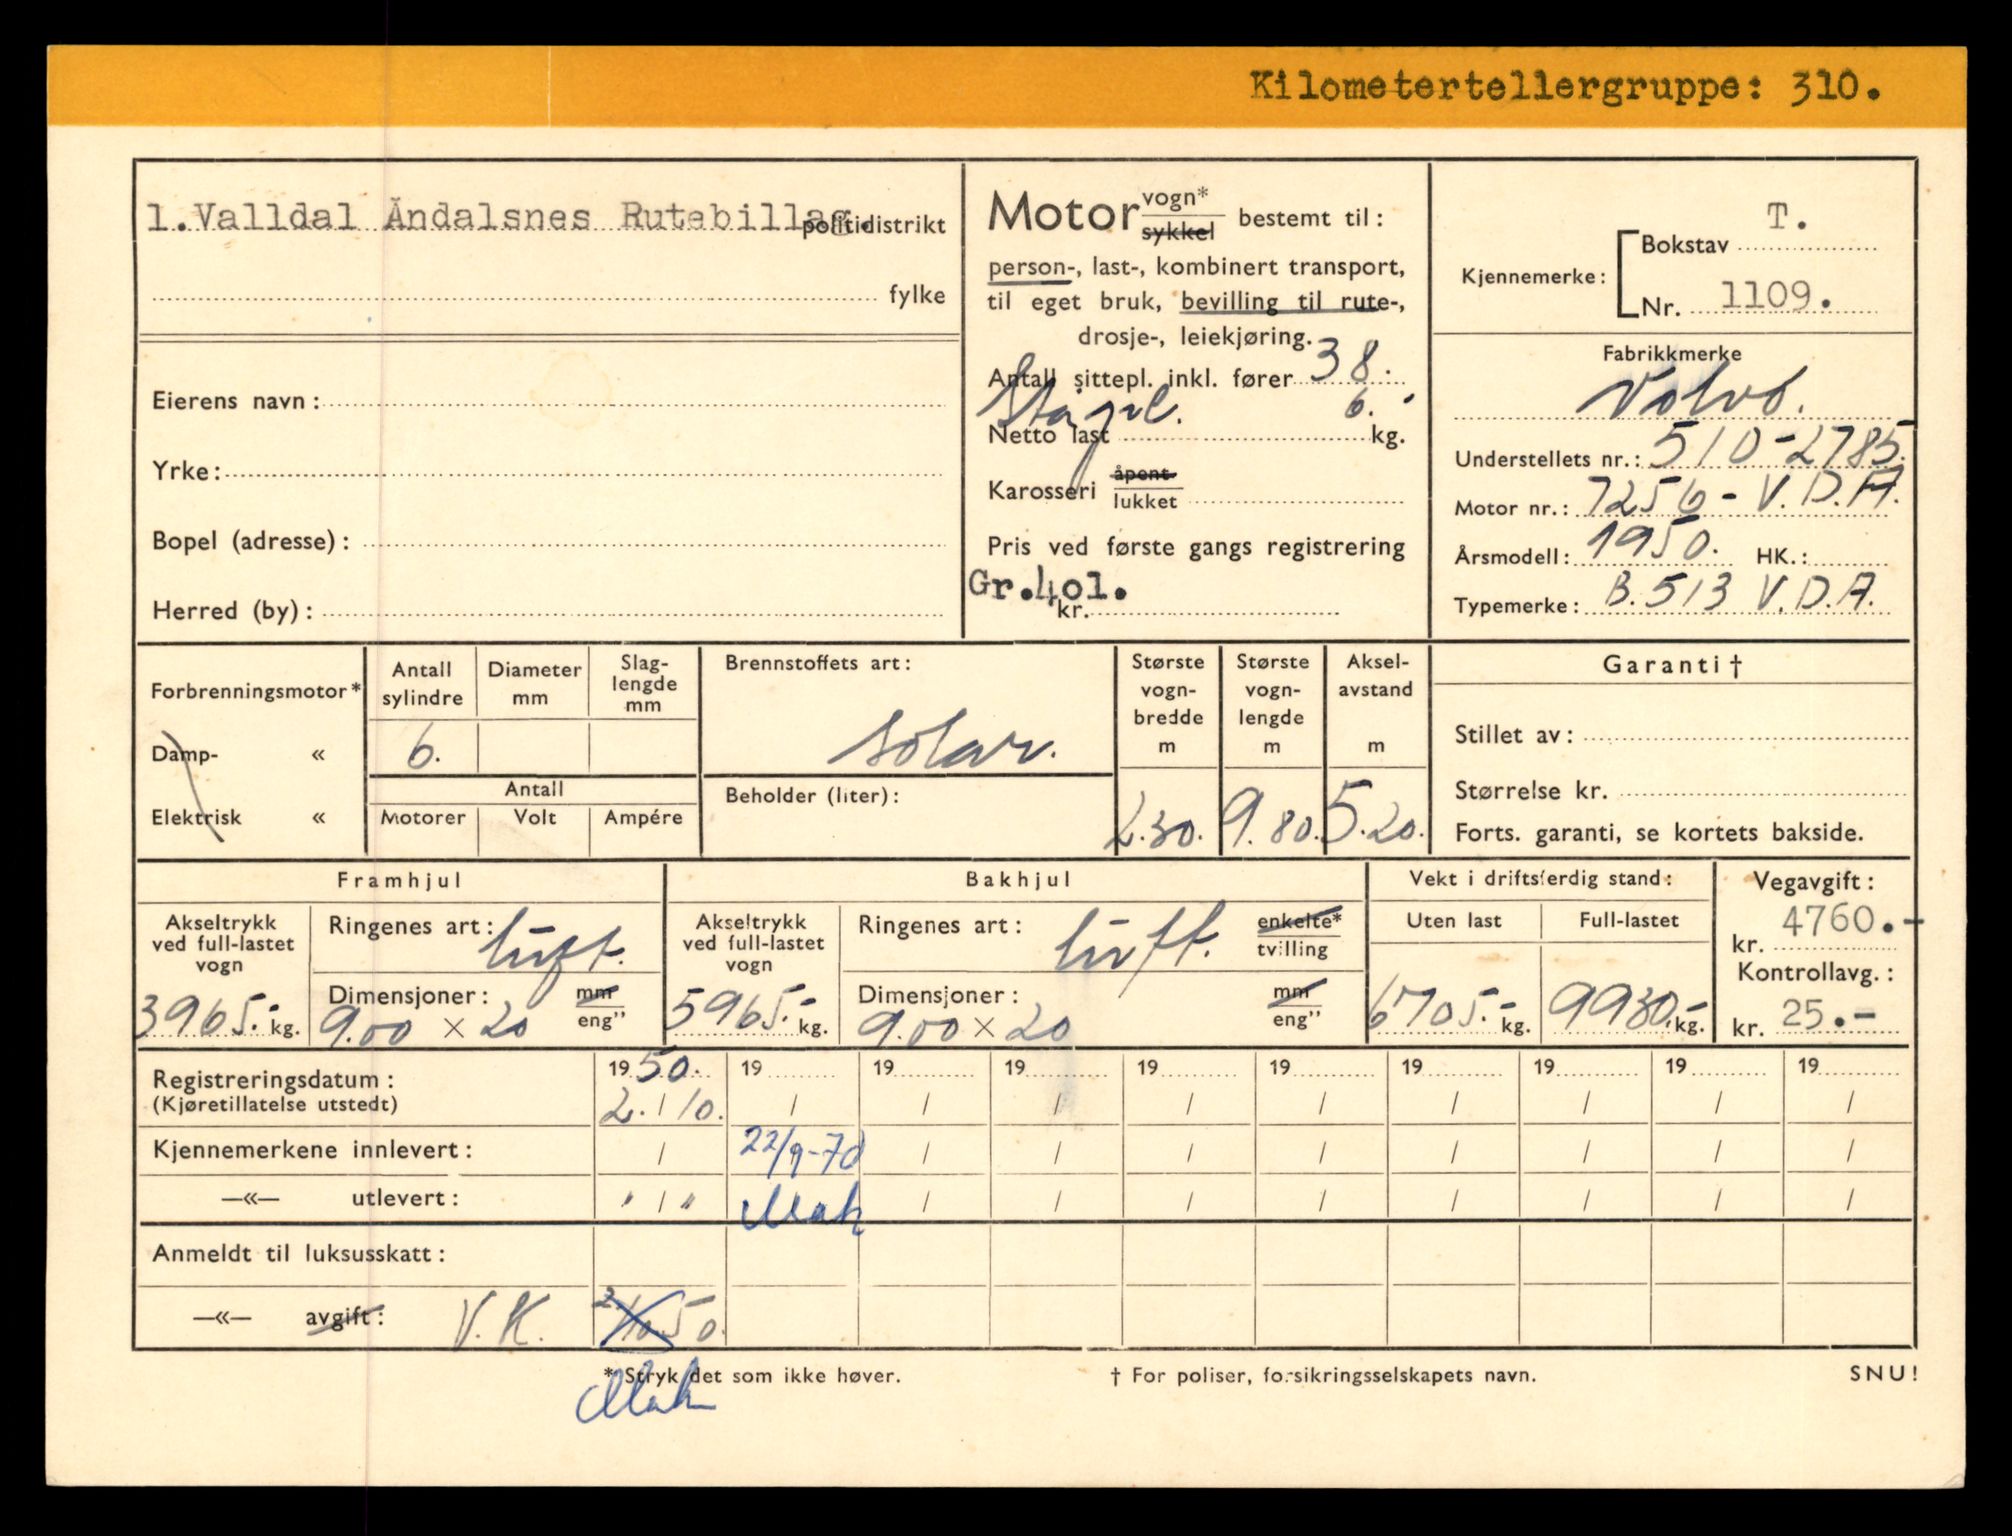 Kilometertellergruppe: 310.
1.Valldal Åndalsnes Rutebillag. politidistrikt
fylke
Eierens navn:
Yrke:
Bopel (adresse):
Herred (by):
Motor vogn* / sykkel bestemt til:
person-, last-, kombinert transport,
til eget bruk, bevilling til rute-,
drosje-, leiekjøring.
Antall sittepl. inkl. fører 38.
Ståpl. 6.
Netto last kg.
Karosseri åpent / lukket
Pris ved første gangs registrering
Gr.401.
kr.
Kjennemerke: Bokstav T.
Nr. 1109.
Fabrikkmerke
Volvo.
Understellets nr.: 510-2785.
Motor nr.: 7256 - V.D.A.
Årsmodell: 1950. HK.:
Typemerke: B.513 V.D.A.
Forbrenningsmotor*
Damp- «
Elektrisk «
Antall sylindre
6.
Diameter mm
Slag-
lengde
mm
Antall
Motorer Volt Ampére
Brennstoffets art:
solar.
Beholder (liter):
Største
vogn-
bredde
m
2.30.
Største
vogn-
lengde
m
9.80.
Aksel-
avstand
m
5.20.
Garanti †
Stillet av:
Størrelse kr.
Forts. garanti, se kortets bakside.
Framhjul
Akseltrykk
ved full-lastet
vogn
3965.- kg.
Ringenes art: luft.
Dimensjoner: mm / eng"
9.00 × 20
Bakhjul
Akseltrykk
ved full-lastet
vogn
5965.- kg.
Ringenes art: luft. enkelte* / tvilling
Dimensjoner: mm / eng"
9.00 × 20
Vekt i driftsferdig stand:
Uten last Full-lastet
6705.- kg. 9930.- kg.
Vegavgift:
kr. 4760.-
Kontrollavg.:
kr. 25.-
Registreringsdatum: 1950. 19 19 19 19 19 19 19 19 19
(Kjøretillatelse utstedt) 2. / 10. / / / / / / / / /
Kjennemerkene innlevert: / 22/9-70 / / / / / / / /
—«— utlevert: " / " Mah / / / / / / / /
Anmeldt til luksusskatt:
—«— avgift: V.K. 2/10.50.
* Stryk det som ikke høver. † For poliser, forsikringsselskapets navn. SNU!
Mah